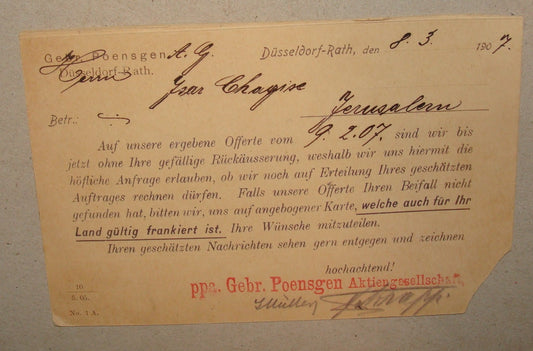 Gebr. Poensgen A. G.
Düsseldorf-Rath.
Düsseldorf-Rath, den 8. 3. 1907.
Herrn
Isac Chagise
Jerusalem
Betr.:
Auf unsere ergebene Offerte vom 9. 2. 07. sind wir bis
jetzt ohne Ihre gefällige Rückäusserung, weshalb wir uns hiermit die
höfliche Anfrage erlauben, ob wir noch auf Erteilung Ihres geschätzten
Auftrages rechnen dürfen. Falls unsere Offerte Ihren Beifall nicht
gefunden hat, bitten wir, uns auf angebogener Karte, welche auch für Ihr
Land gültig frankiert ist, Ihre Wünsche mitzuteilen.
Ihren geschätzten Nachrichten sehen gern entgegen und zeichnen
hochachtend!
ppa. Gebr. Poensgen Aktiengesellschaft.
10
5. 05.
No. 1 A.